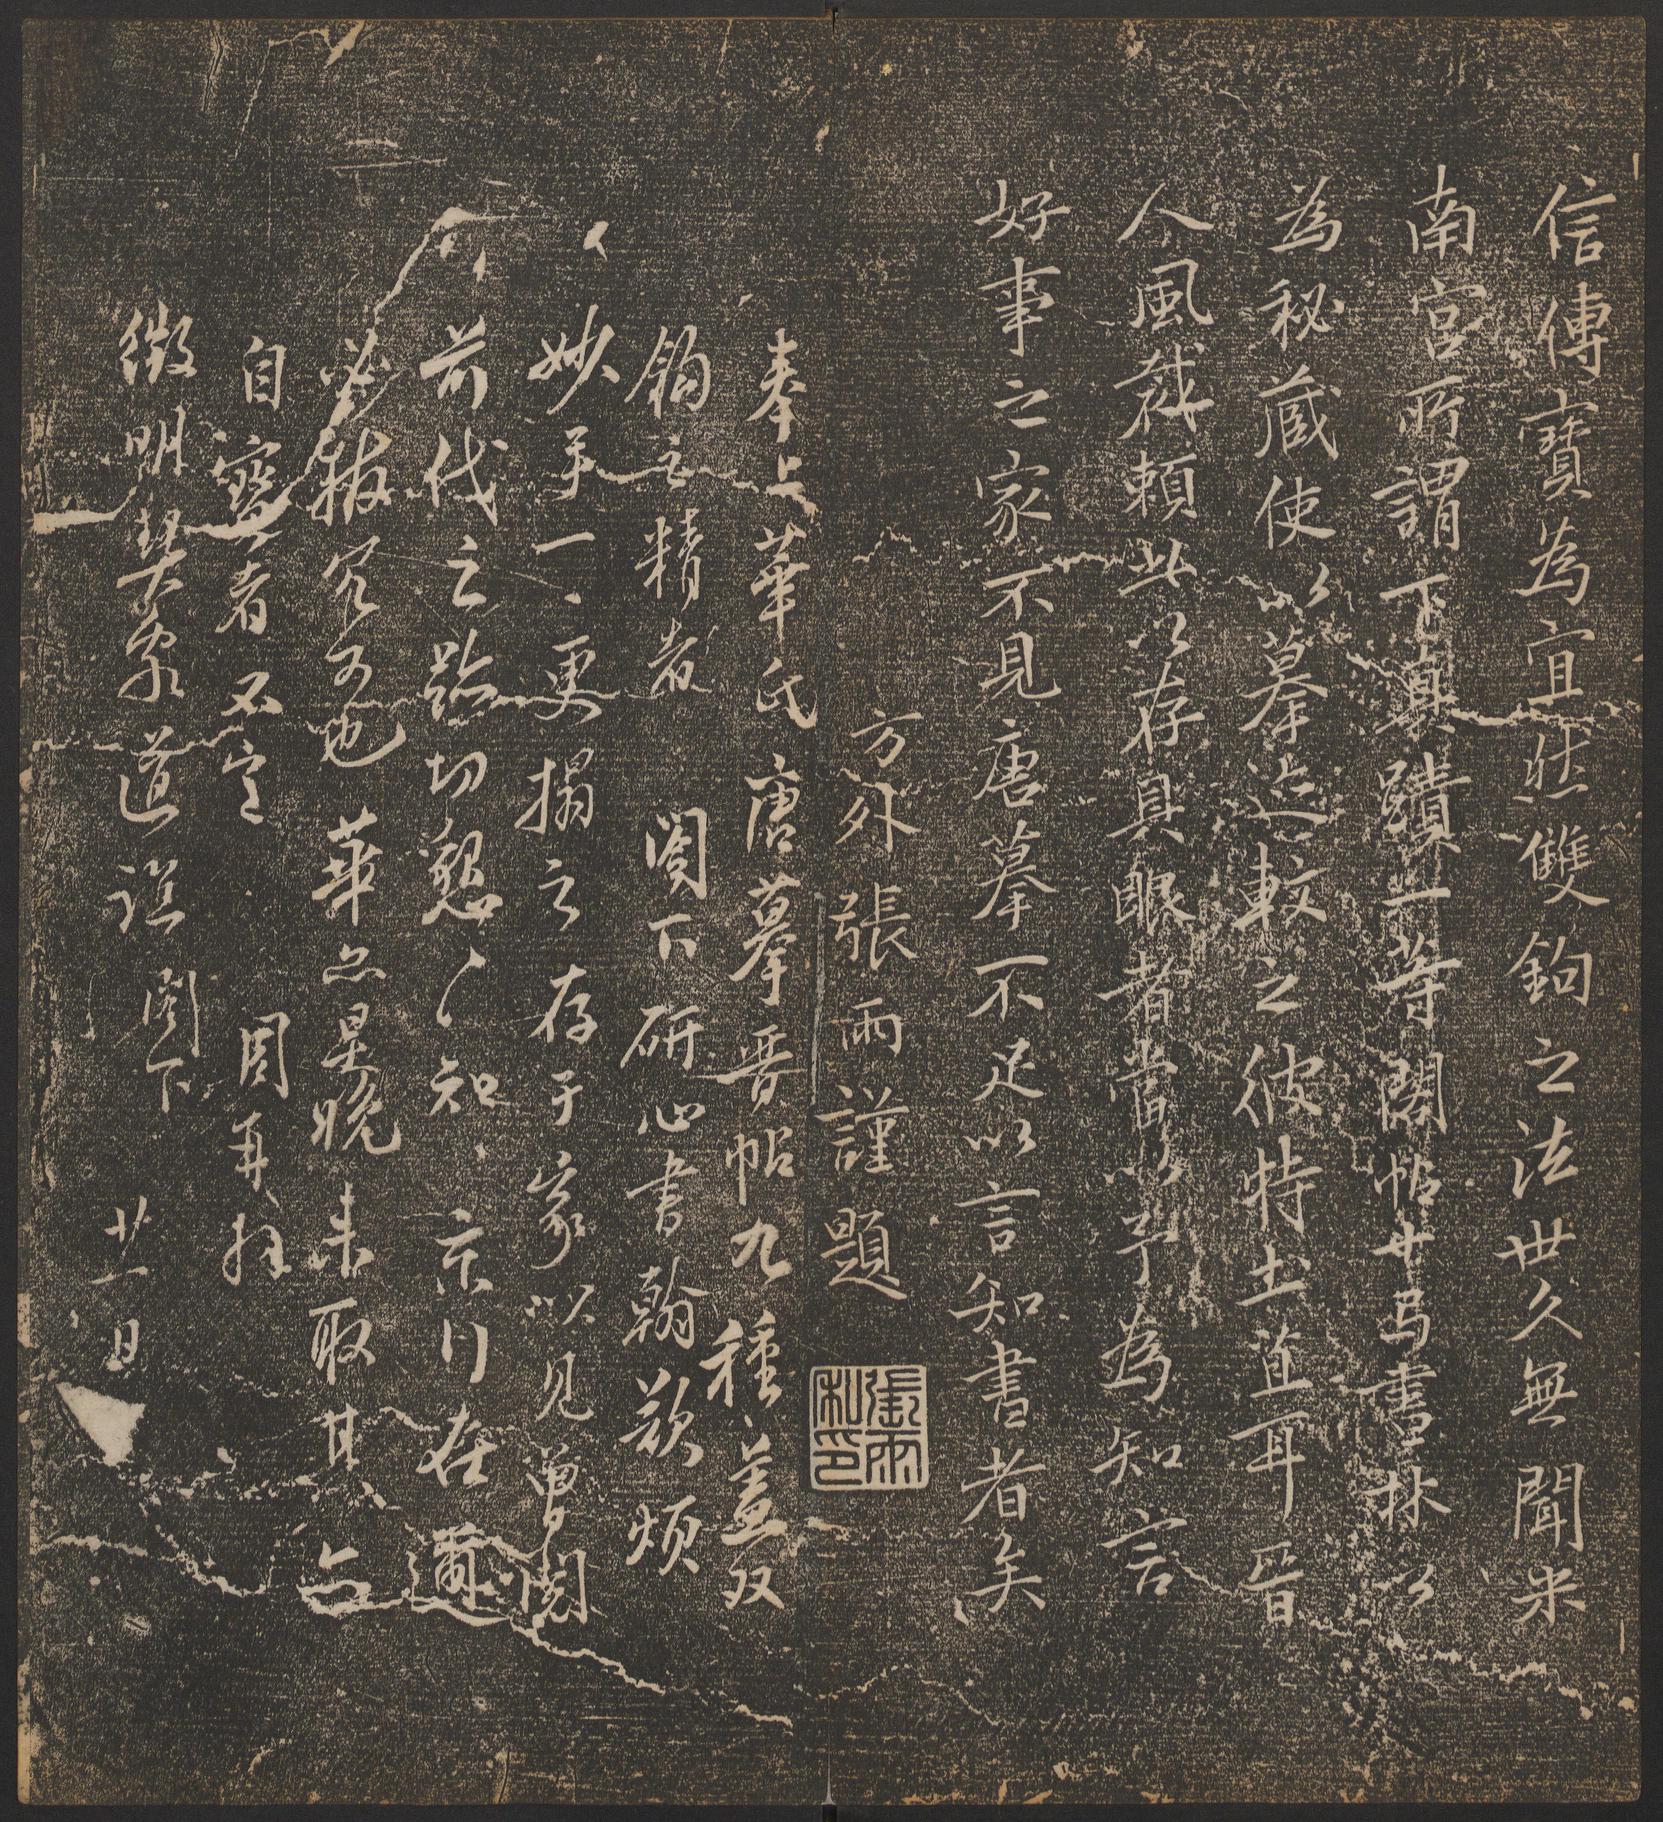 信傳寶為宜然雙鉤之法世久無聞米
南宮所謂下真蹟一等閣帖廿弓書林以
為秘蔵使以摹迹較之彼特土苴耳晉
人風裁賴此以存具眼者當以予為知言
好事之家不見唐摹不足以言知書者矣
方外張雨謹題
張雨私印
奉上華氏唐摹晉帖九種蓋双
鉤之精者 閣下研心書翰欲煩
妙手一一更搨之存于家以見曾閱
前代之跡切懇々知 在邇
必發冗可也 華亦早晚来取其亦
自寶者不宣 再拜
徵明契家 道誼閣下 廿一日